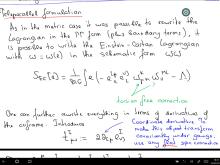 Teleparallel formulation
As in the metric case it was possible to rewrite the
Lagrangian in the ΓΓ form (plus boundary terms), it
is possible to write the Einstein-Cartan Lagrangian
with ω = ω(e) in the schematic form ωω
torsion free connection
One can further rewrite everything in terms of derivatives of
the coframe. Introduce
Coordinate derivative. To
make this object transform
covariantly under gauge,
use any flat spin connection